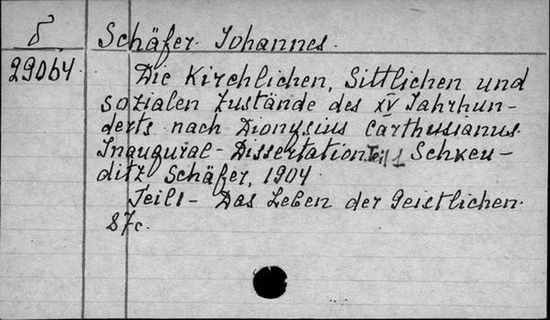 δ Schäfer Johannes.
29064. Die Kirchlichen, Sittlichen und
sozialen Zustände des XV Jahrhun-
derts nach Dionysius Carthusianus.
Inaugural-Dissertation. Teil 1 Schkeu-
ditz Schäfer, 1904
Teil 1 - Das Leben der Geistlichen.
87c.